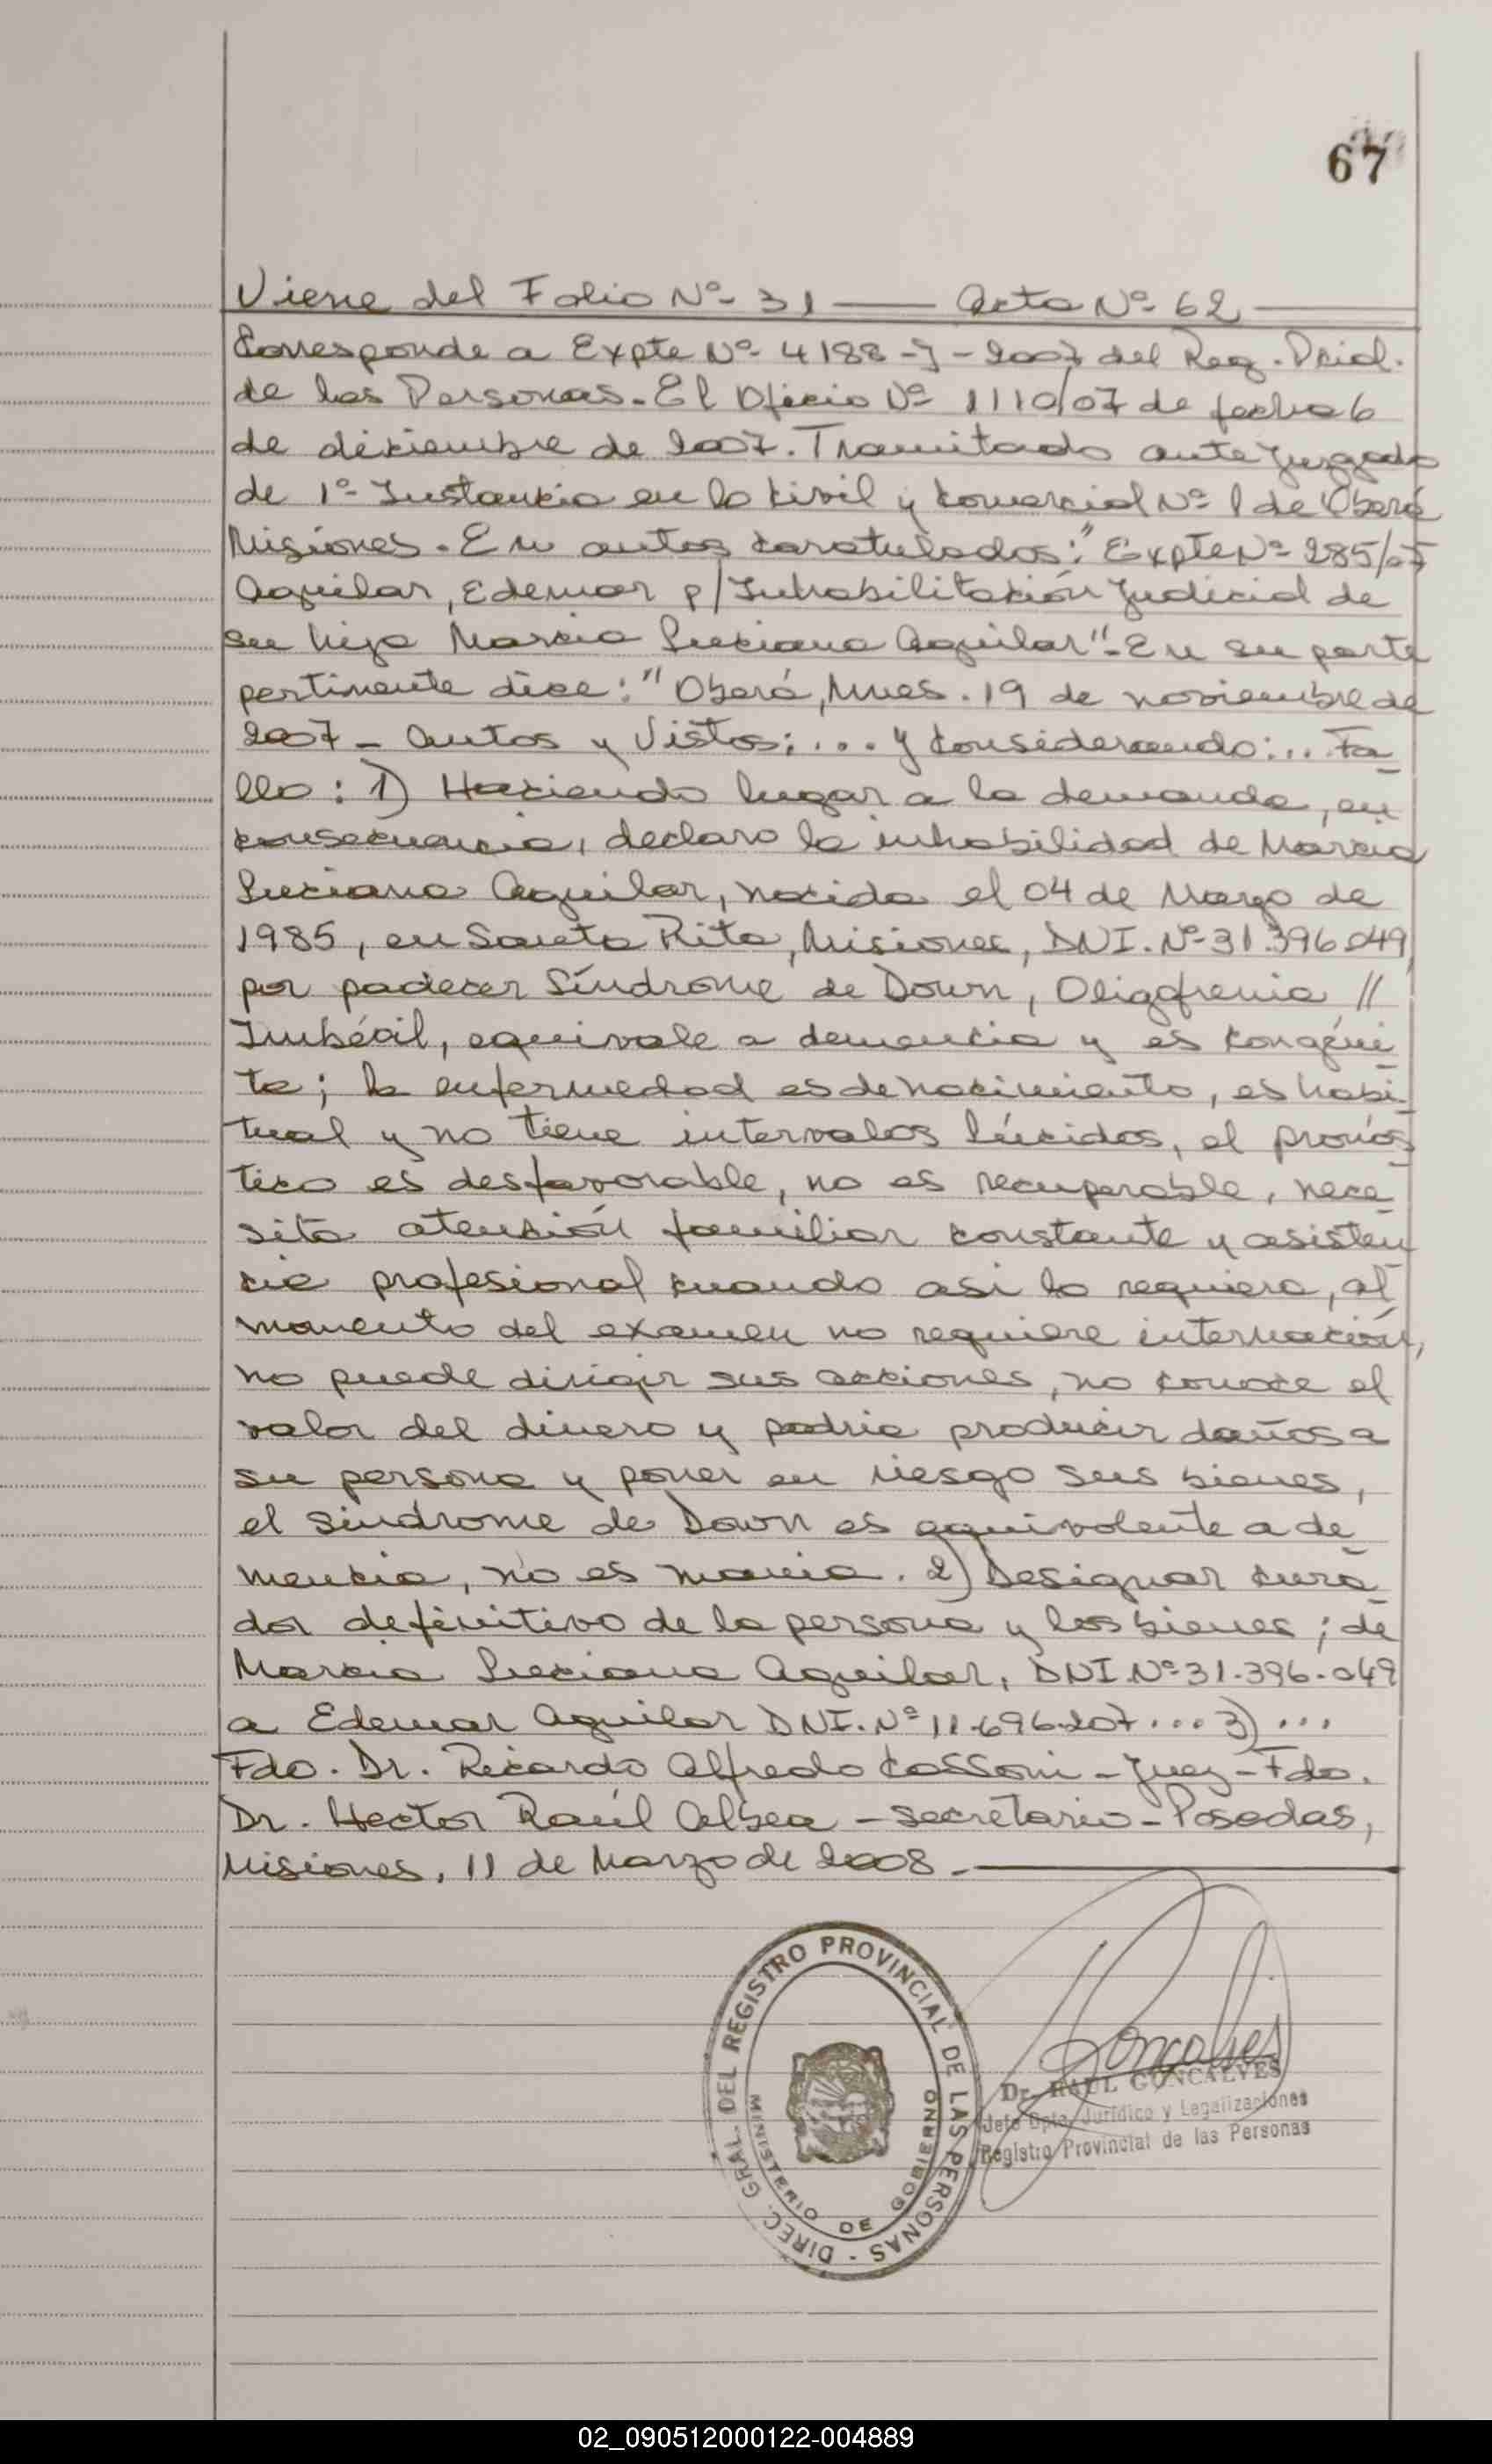 67
Viene del Folio Nº 31 —— Acta Nº 62 ——
Corresponde a Expte Nº 4188-J-2007 del Reg. Pcial.
de las Personas. El Oficio Nº 1110/07 de fecha 6
de diciembre de 2007. Tramitado ante Juzgado
de 1º Instancia en lo Civil y Comercial Nº 1 de Oberá
Misiones. En autos caratulados: "Expte Nº 285/07
Aquilar, Edemar p/Inhabilitación Judicial de
su hija Marcia Luciana Aquilar". En su parte
pertinente dice: "Oberá, Mnes. 19 de noviembre de
2007 - Autos y Vistos: ... y Considerando: ... Fa-
llo: 1) Haciendo lugar a la demanda, en
consecuencia, declaro la inhabilidad de Marcia
Luciana Aquilar, nacida el 04 de Marzo de
1985, en Santa Rita, Misiones, DNI. Nº 31.396.049,
por padecer Síndrome de Down, Oligofrenia //
Imbécil, equivale a demencia y es congéni-
ta; la enfermedad es de nacimiento, es habi-
tual y no tiene intervalos lúcidos, el pronós-
tico es desfavorable, no es recuperable, nece-
sita atención familiar constante y asisten-
cia profesional cuando asi lo requiera, al
momento del examen no requiere internación,
no puede dirigir sus acciones, no conoce el
valor del dinero y podria producir daños a
su persona y poner en riesgo sus bienes,
el sindrome de Down es equivalente a de-
mencia, no es mania. 2) Designar cura-
dor definitivo de la persona y los bienes; de
Marcia Luciana Aquilar, DNI. Nº 31.396.049
a Edemar Aquilar DNI. Nº 11.696.207 ... 3) ...
Fdo. Dr. Ricardo Alfredo Cassoni - Juez - Fdo.
Dr. Hector Raúl Albea - Secretario - Posadas,
Misiones, 11 de Marzo de 2008. ——
DIREC. GRAL. DEL REGISTRO PROVINCIAL DE LAS PERSONAS -
MINISTERIO DE GOBIERNO
Goncalves
Dr. RAUL GONCALVES
Jefe Dpto. Jurídico y Legalizaciones
Registro Provincial de las Personas
02_090512000122-004889